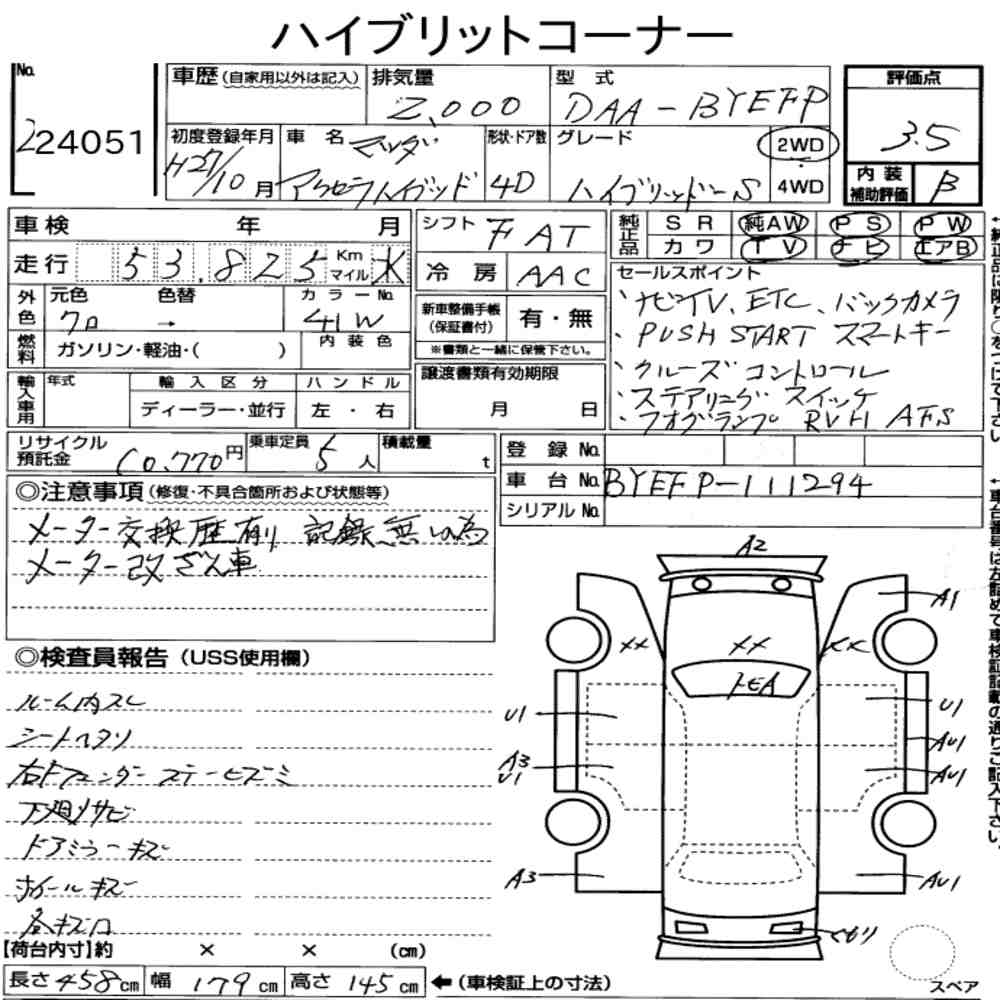 ハイブリットコーナー
No.
224051
車歴(自家用以外は記入)
排気量
2,000
型式
DAA-BYEFP
評価点
3.5
初度登録年月
H27/10月
車名
マツダ
アクセラハイブリッド
形状・ドア数
4D
グレード
ハイブリッド-S
2WD
4WD
内装
補助評価
B
車検 年 月
シフト
FAT
純正品
SR 純AW PS PW
カワ TV ナビ エアB
走行 53,825 Km マイル K
冷房
AAC
セールスポイント
・ナビTV、ETC、バックカメラ
・PUSH START スマートキー
・クルーズコントロール
・ステアリングスイッチ
・フォグランプ RVM AFS
外色
元色 色替
クロ →
カラーNo.
41W
新車整備手帳
(保証書付)
有・無
※書類と一緒に保管下さい。
燃料
ガソリン・軽油・( )
内装色
輸入車用
年式
輸入区分
ハンドル
ディーラー・並行
左・右
譲渡書類有効期限
月 日
リサイクル
預託金
10,770円
乗車定員
5人
積載量
t
登録No.
車台No. BYEFP-111294
シリアルNo.
◎注意事項(修復・不具合箇所および状態等)
メーター交換歴有り 記録無しの為
メーター改ざん車
◎検査員報告(USS使用欄)
ルーム内スレ
シートヘタリ
右Fフェンダーステーヒズミ
下廻りサビ
ドアミラーキズ
ホイールキズ
各キズ凹
A2
A1
XX
XX
XX
トビA
U1
A3
U1
A3
U1
AU1
AU1
AU1
くもり
スペア
【荷台内寸】約 × × (cm)
長さ458cm 幅179cm 高さ145cm ←(車検証上の寸法)
←純正品に限り○をつけて下さい。
←車台番号は左詰めて車検証記載の通りご記入下さい。